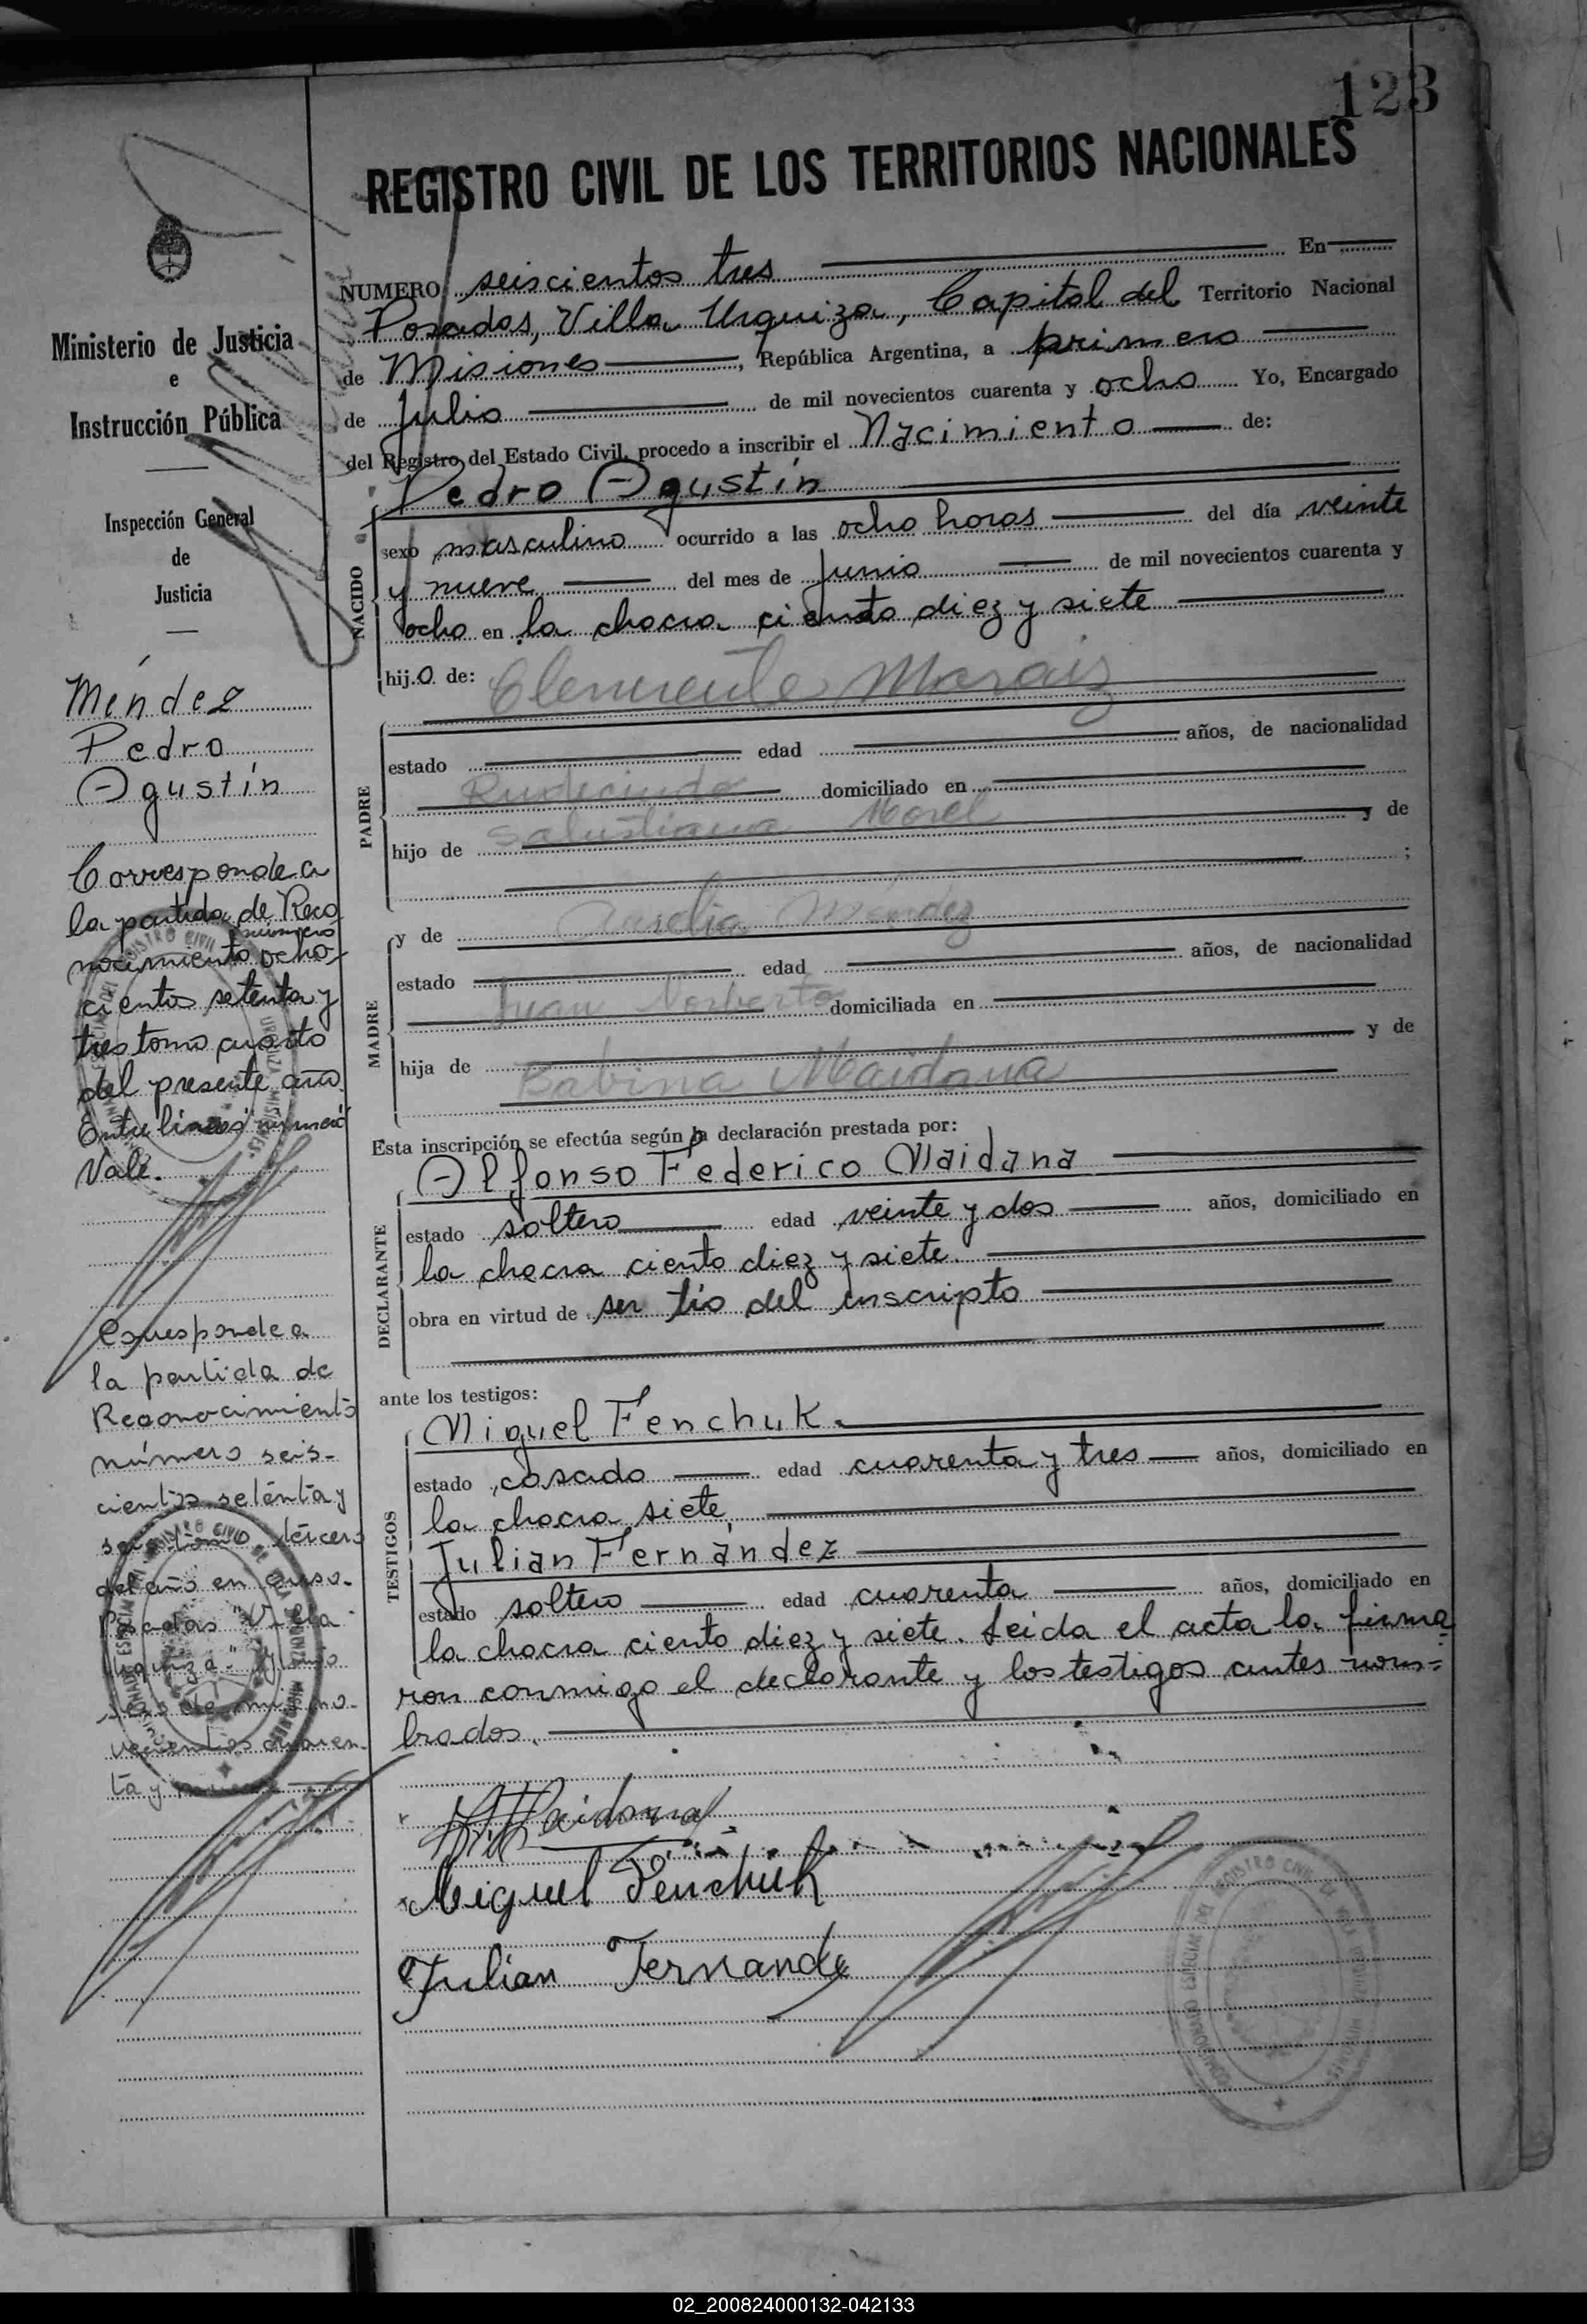 123
REGISTRO CIVIL DE LOS TERRITORIOS NACIONALES
NUMERO seiscientos tres En
Posadas, Villa Urquiza, Capital del Territorio Nacional
de Misiones, República Argentina, a primero
de Julio de mil novecientos cuarenta y ocho Yo, Encargado
del Registro del Estado Civil, procedo a inscribir el Nacimiento de:
NACIDO
Pedro Agustín
sexo masculino ocurrido a las ocho horas del día veinte
y nueve del mes de Junio de mil novecientos cuarenta y
ocho en la chacra ciento diez y siete
hijo de: Clemente
PADRE
estado edad años, de nacionalidad
Rudecindo domiciliado en
hijo de Salustiana Morel y de
;
y de Aurelia Méndez
MADRE
estado edad años, de nacionalidad
Juan Norberto domiciliada en
hija de y de
Babina Maidana
Esta inscripción se efectúa según la declaración prestada por:
DECLARANTE
Alfonso Federico Maidana
estado soltero edad veinte y dos años, domiciliado en
la chacra ciento diez y siete.
obra en virtud de ser tío del inscripto
ante los testigos:
TESTIGOS
Miguel Fenchuk.
estado casado edad cuarenta y tres años, domiciliado en
la chacra siete,
Julian Fernández
estado soltero edad cuarenta años, domiciliado en
la chacra ciento diez y siete. Leida el acta la firma=
ron conmigo el declarante y los testigos antes nom=
brados.
Maidana
Miguel Fenchuk
Julian Fernande
Ministerio de Justicia
e
Instrucción Pública
Inspección General
de
Justicia
Méndez
Pedro
Agustín
Corresponde a
la partida de Reco
número
nocimiento ocho-
cientos setenta y
tres tomo cuarto
del presente año.
Entre líneas "número"
Vale.
Corresponde a
la partida de
Reconocimiento
número seis-
cientos setenta y
tomo tercero
del año en curso.
Posadas "Villa
Urquiza."
de mil no-
vecientos cuaren-
ta y
02_200824000132-042133